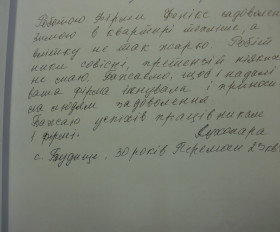 Роботою фірми Фенікс задоволен
зимою в квартирі тепліше, а
влітку не так жарко. Робіт
ники совісні, претензій ніяких
не маю. Бажаємо, щоб і надалі
ваша фірма існувала і приноси
ла людям задоволення
Бажаю успіхів працівникам
фірми.
Сухопара
с. Будище. 30 років Перемоги 25 кв.